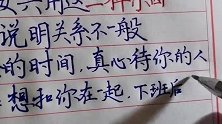 说明关系不一般
的时间，真心待你的人
想和你在一起，下班后